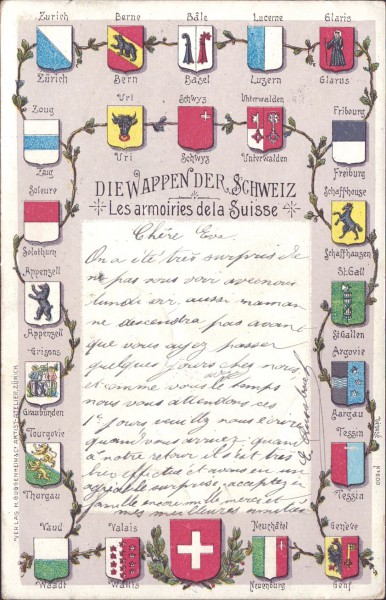 Zurich Berne Bâle Lucerne Glaris
Zürich Bern Basel Luzern Glarus
Zoug Uri Schwyz Unterwalden Fribourg
Zug Uri Schwyz Unterwalden Freiburg
Soleure Schaffhouse
DIE WAPPEN DER SCHWEIZ
Les armoiries de la Suisse
Solothurn Schaffhausen
Appenzell St. Gall
Appenzell St. Gallen
Grisons Argovie
Graubünden Aargau
Tourgovie Tessin
Thurgau Tessin
Chère Eve.
On a été très surpris de
ne pas vous voir
lundi aussi maman
ne descendra pas avant
que vous ayez passer
quelques jours chez nous,
et comme vous le temps
nous vous attendons ces
jours, nous
quand vous arrivez; quand
à notre retour il s'est très
très et avons eu un
surprise, acceptez
famille mille merci et
mes meilleures amitiés
Vaud Valais Neuchâtel Genève
Waadt Wallis Neuenburg Genf
VERLAG H. GUGGENHEIM & Co. ARTIST. ATELIER, ZÜRICH.